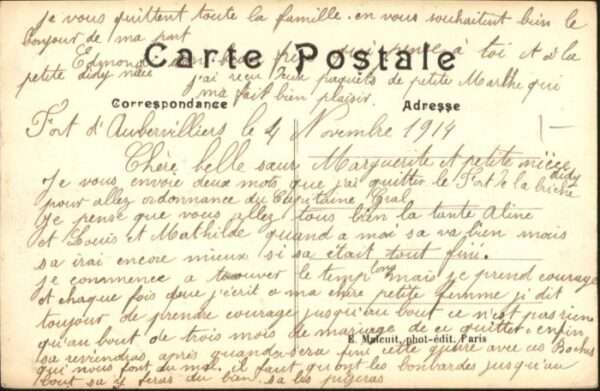 je vous quittent toute la famille en vous souhaitent bien le
bonjour de ma part
Edmond qui pense à toi et à la
petite didy nièce j'ai reçu deux paquets de petite Marthe qui
ma fait bien plaisir.
Carte Postale
Correspondance Adresse
Fort d'Aubervilliers le 4 Novembre 1914
Chère belle sœur Marguerite et petite nièce
didy
Je vous envoie deux mots que j'ai quitter le Fort de la briche
pour allez ordonnance du Capitaine Gral
Je pense que vous allez tous bien la tante Aline
et Louis et Mathilde quand a moi sa va bien mais
sa irai encore mieux si sa était tout fini.
je commence a trouver le temp long mais je prend courage
et chaque fois que j'écrit a ma chère petite femme je dit
toujour de prendre courage jusqu'au bout ce n'est pas rien
qu'au bout de trois mois de mariage de ce quitter enfin
E. Malcuit, phot-édit. Paris
sa reviendras après quand sera fini cette guerre avec ces Boches
qui nous font du mal il faut qu'ont les bombardes jusqu'au
bout sa